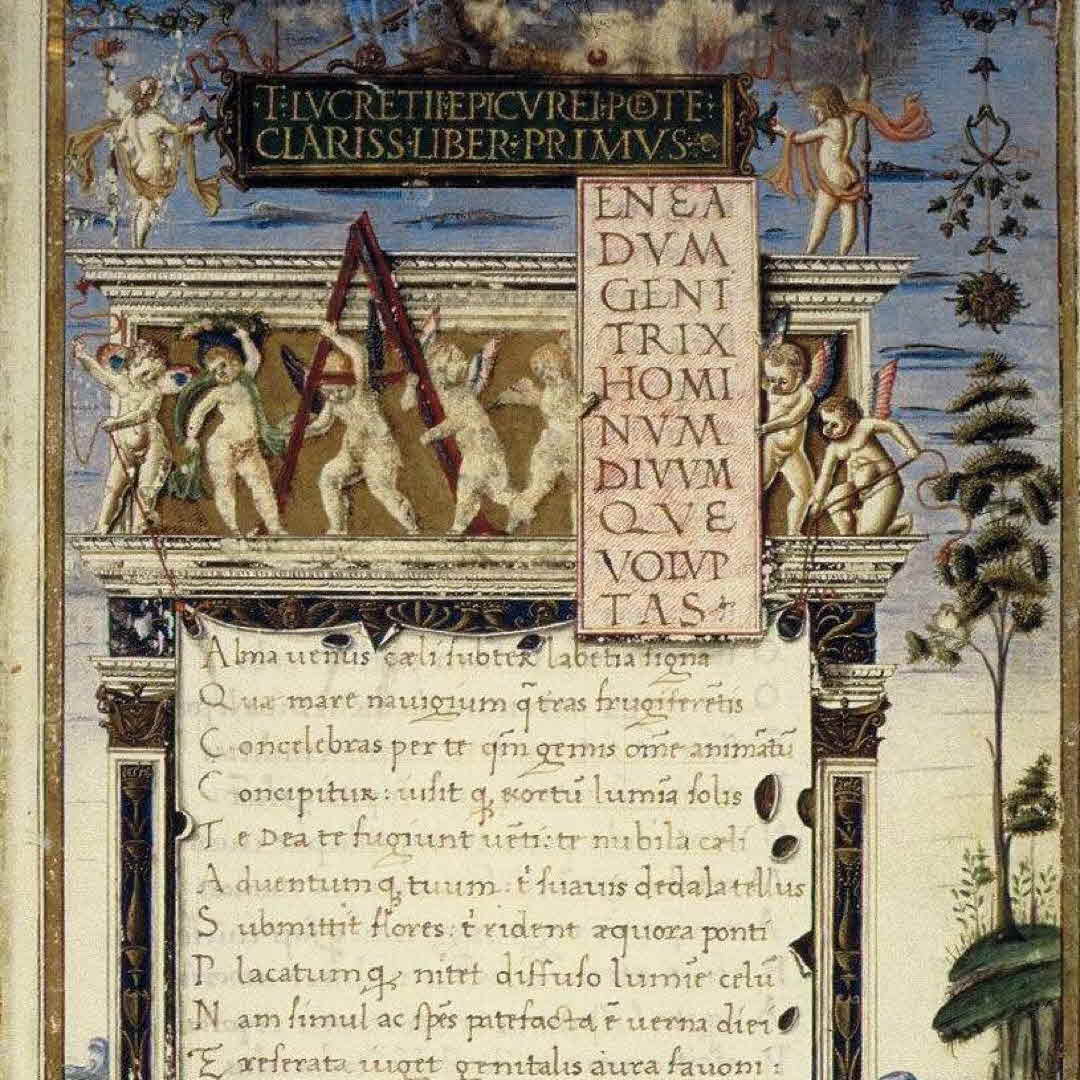 ·T·LVCRETII·EPICVREI·POETE:
CLARISS·LIBER·PRIMVS·
A
ENEA
DVM
GENI
TRIX
HOMI
NVM
DIVVM
QVE
VOLVP
TAS
Alma uenus cæli subter labētia signa
Quæ mare nauigium q̄ t̄ras frugiferētis
Concelebras per te qm̄ genus om̄e animātū
Concipitur: uisit q; exortū lumīa solis
Te Dea te fugiunt uēti: te nubila cæli
Aduentum q; tuum: t̄ suauis dedala tellus
Submittit flores: t̄ rident æquora ponti
Placatum q; nitet diffuso lumīe celū
Nam simul ac spēs patefacta ē uerna diei
Et reserata uiget genitalis aura fauoni: